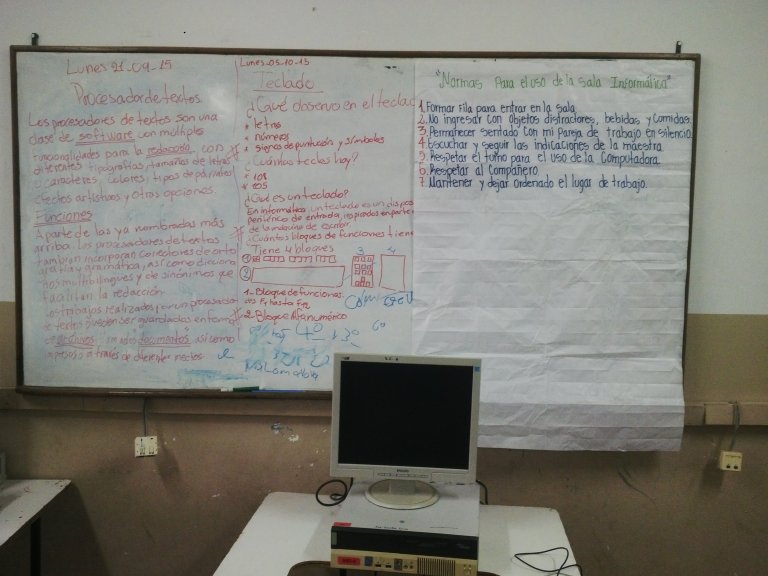 Lunes 21-09-15
Procesador de textos
Los procesadores de textos son una
clase de software con múltiples
funcionalidades para la redacción, con
diferentes tipografías, tamaños de letras
o caracteres, colores, tipos de párrafos
efectos artísticos y otras opciones.
Funciones
Aparte de las ya nombradas más
arriba. Los procesadores de textos
tambien incorporan correctores de orto
grafía y gramática, así como dicciona
rios multilingues y de sinónimos que
facilitan la redacción.
Los trabajos realizados por un procesador
de textos pueden ser guardados en forma
de archivos documentos así como
impresos a través de diferentes medios
Lunes-05-10-15
Teclado
¿Qué observo en el teclad
* letras
* números
* signos de puntución y símbolos
¿Cuántas teclas hay?
* 101
* 105
¿Qué es un teclado?
En informática un teclado es un dispos
periférico de entrada, inspirados en parte
de la máquina de escribir
¿Cuántos bloques de funciones tiene
Tiene 4 bloques
1
2
3
4
1- Bloque de funciones:
F1 hasta F12
2- Bloque Alfanumérico
"Normas Para el uso de la sala Informática"
1. Formar Fila para entrar en la sala
2. No ingresar con objetos distractores, bebidas y comidas.
3. Permanecer sentado con mi pareja de trabajo en silencio.
4. Escuchar y seguir las indicaciones de la maestra
5. Respetar el turno para el uso de la Computadora
6. Respetar al Compañero
7. Mantener y dejar ordenado el lugar de trabajo.
PHILIPS